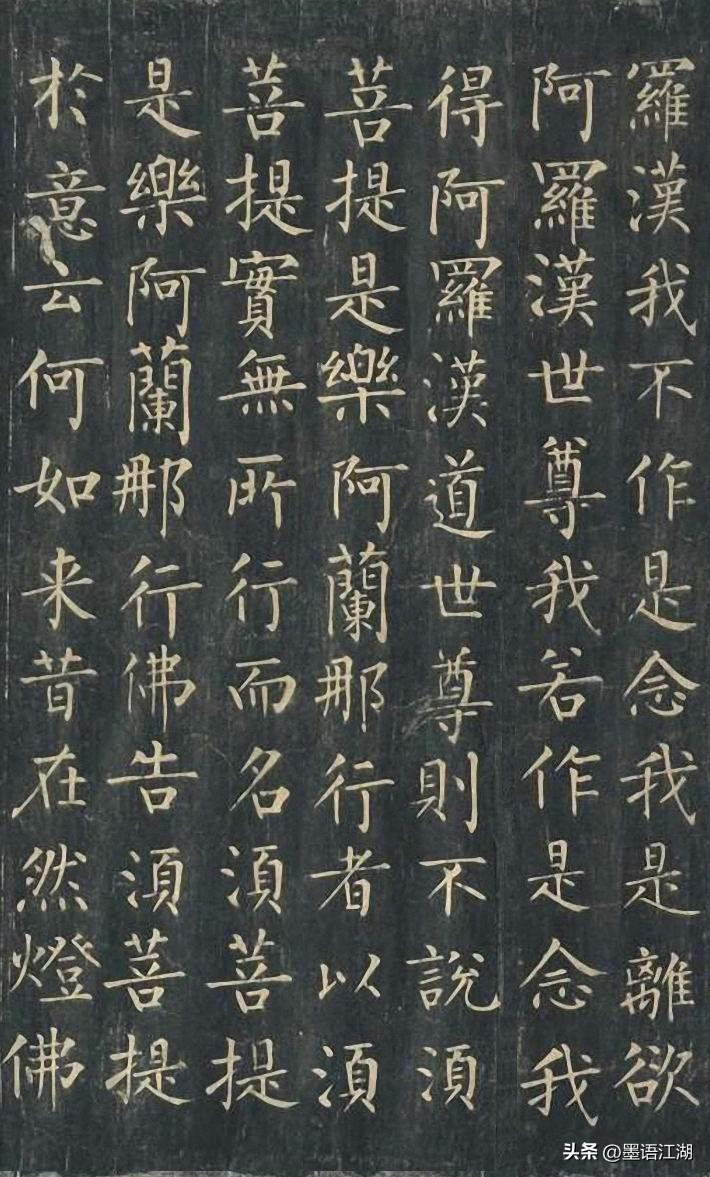 羅漢我不作是念我是離欲
阿羅漢世尊我若作是念我
得阿羅漢道世尊則不說須
菩提是樂阿蘭那行者以須
菩提實無所行而名須菩提
是樂阿蘭那行佛告須菩提
於意云何如来昔在然燈佛
头条 @墨语江湖